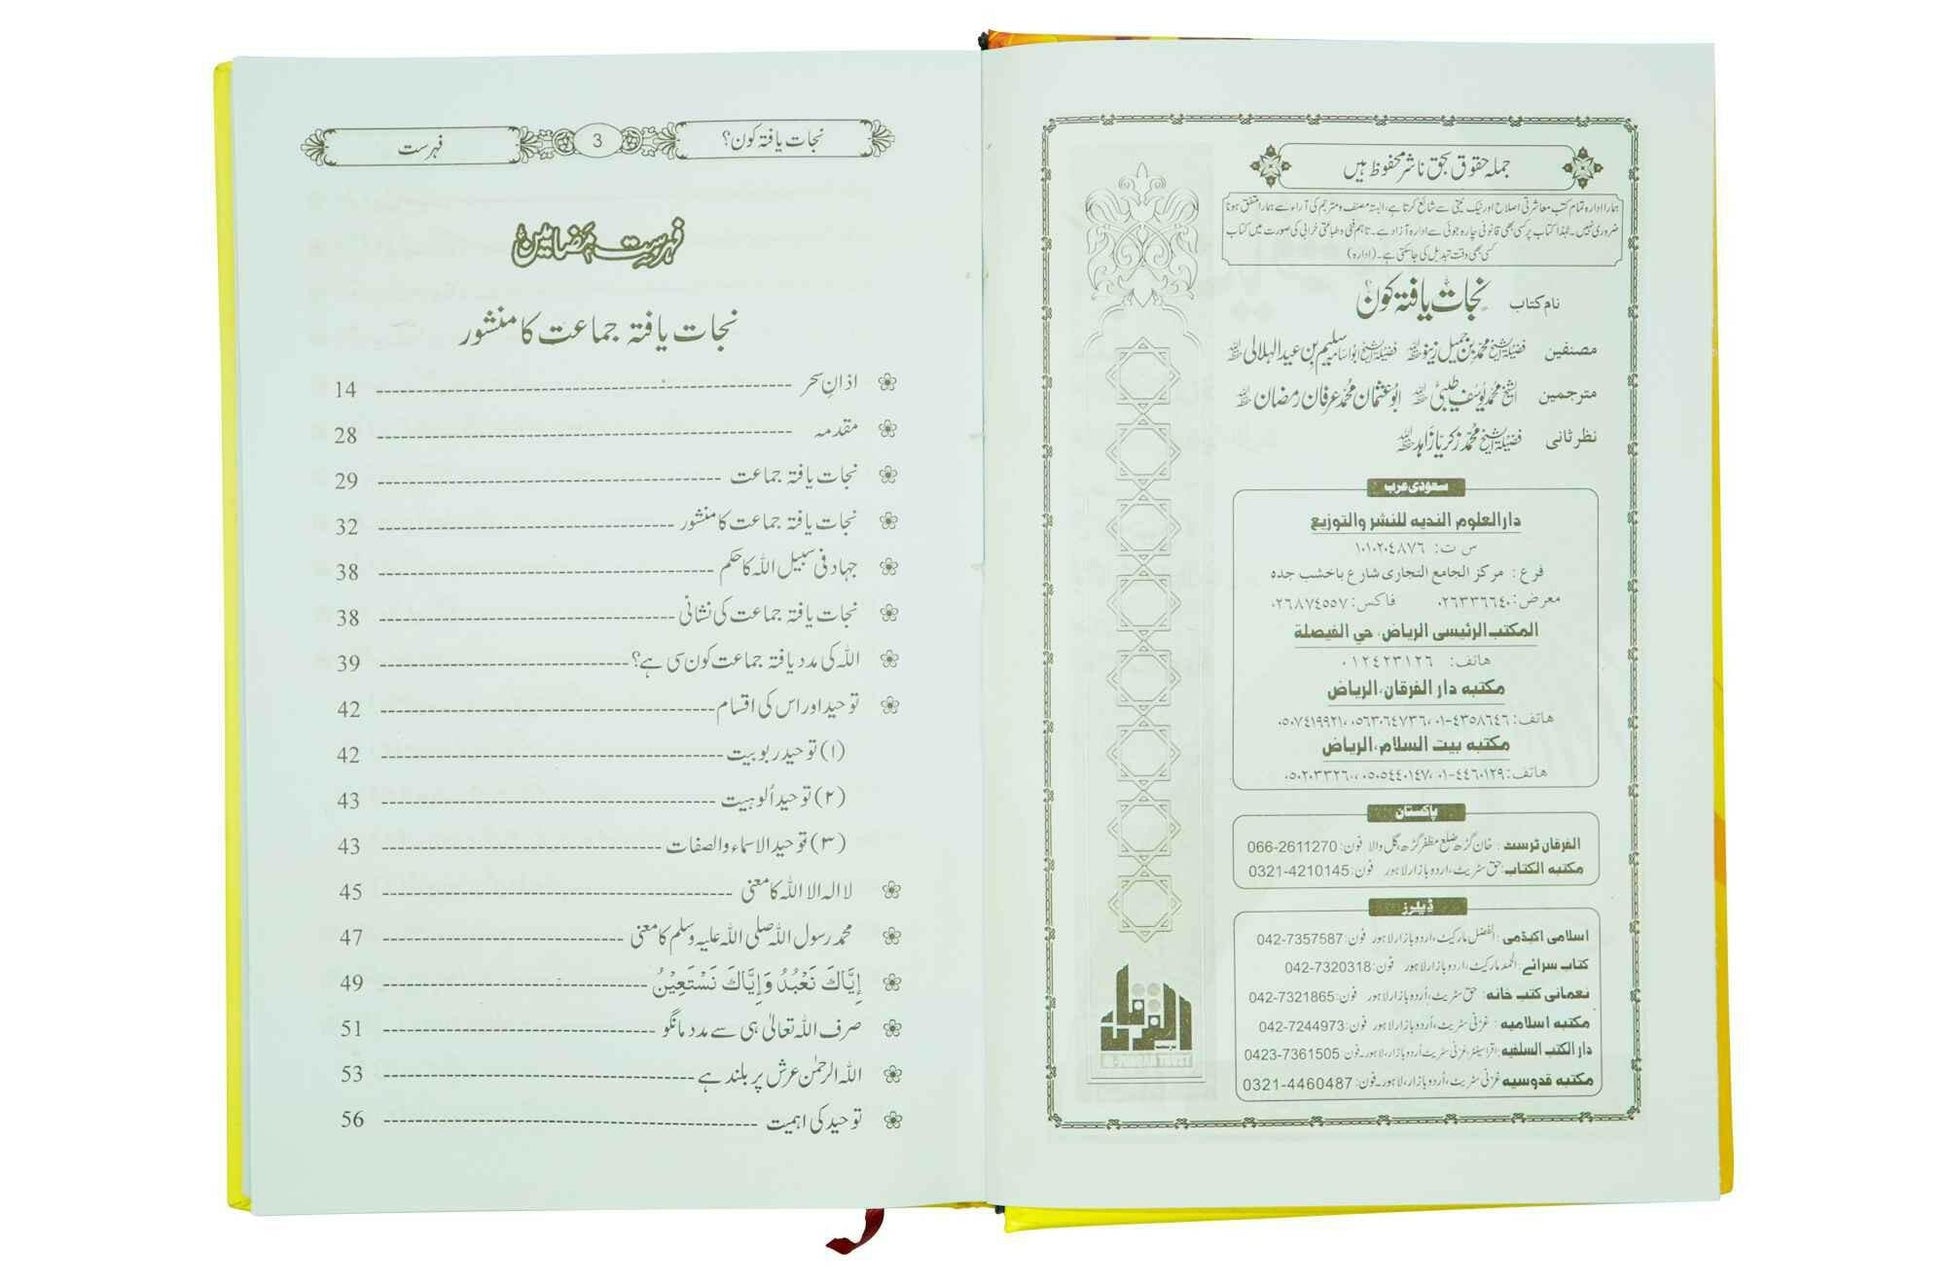 جملہ حقوق بحق ناشر محفوظ ہیں
ہمارا ادارہ تمام کتب معاشرتی اصلاح اور نیک نیتی سے شائع کرتا ہے، البتہ مصنف و مترجم کی آراء سے ہمارا متفق ہونا
ضروری نہیں۔ لہٰذا کتاب پر کسی بھی قانونی چارہ جوئی سے ادارہ آزاد ہے۔ تاہم فنی و طباعتی خرابی کی صورت میں کتاب
کسی بھی وقت تبدیل کی جا سکتی ہے۔ (ادارہ)
نام کتاب نجات یافتہ کون؟
مصنفین فضیلۃ الشیخ محمد بن جمیل زینو حفظہ اللہ فضیلۃ الشیخ ابو اسامہ سلیم بن عید الہلالی حفظہ اللہ
مترجمین الشیخ محمد یوسف طیبی حفظہ اللہ ابو عثمان محمد عرفان رمضان حفظہ اللہ
نظر ثانی فضیلۃ الشیخ محمد زکریا زاہد حفظہ اللہ
سعودی عرب
دار العلوم الندیہ للنشر والتوزیع
س ت: ۱۰۱۰۲۰٤۸۷٦
فرع: مرکز الجامع التجاری شارع باخشب جدہ
معرض: ۰۲٦۳۳٦٦٤۰ فاکس: ۰۲٦۸۷٤۵۵۷
المکتب الرئیسی الریاض، حي الفیصلة
هاتف: ۰۱۲٤۲۳۱۲٦
مکتبه دار الفرقان، الریاض
هاتف: ۰۱-٤۳۵۸٦٤٦، ۰۵٦۳۰٦٤۷۳٦، ۰۵۰۷٤۱۹۹۲۱
مکتبه بیت السلام، الریاض
هاتف: ۰۱-٤٤٦۰۱۲۹، ۰۵۰۵٤٤۰۱٤۷، ۰۵۰۲۰۳۳۲٦۰
پاکستان
الفرقان ٹرسٹ: خان گڑھ ضلع مظفر گڑھ، گل والا فون: 066-2611270
مکتبه الکتاب: حق سٹریٹ، اردو بازار لاہور فون: 0321-4210145
ڈیلرز
اسلامی اکیڈمی: الفضل مارکیٹ، اردو بازار لاہور فون: 042-7357587
کتاب سرائے: الحمد مارکیٹ، اردو بازار لاہور فون: 042-7320318
نعمانی کتب خانہ: حق سٹریٹ، اُردو بازار لاہور فون: 042-7321865
مکتبه اسلامیه: غزنی سٹریٹ، اُردو بازار لاہور فون: 042-7244973
دار الکتب السلفیه: اقرا سینٹر، غزنی سٹریٹ اُردو بازار، لاہور۔ فون 0423-7361505
مکتبه قدوسیه غزنی سٹریٹ، اُردو بازار، لاہور۔ فون: 0321-4460487
نجات یافتہ کون؟ 3 فہرست
فہرست مضامین
نجات یافتہ جماعت کا منشور
اذانِ سحر 14
مقدمہ 28
نجات یافتہ جماعت 29
نجات یافتہ جماعت کا منشور 32
جہاد فی سبیل اللہ کا حکم 38
نجات یافتہ جماعت کی نشانی 38
اللہ کی مدد یافتہ جماعت کون سی ہے؟ 39
توحید اور اس کی اقسام 42
(۱) توحید ربوبیت 42
(۲) توحید اُلوہیت 43
(۳) توحید الاسماء والصفات 43
لا الہ الا اللہ کا معنی 45
محمد رسول اللہ صلی اللہ علیہ وسلم کا معنی 47
إِيَّاكَ نَعْبُدُ وَإِيَّاكَ نَسْتَعِيْنُ 49
صرف اللہ تعالیٰ ہی سے مدد مانگو 51
اللہ الرحمٰن عرش پر بلند ہے 53
توحید کی اہمیت 56